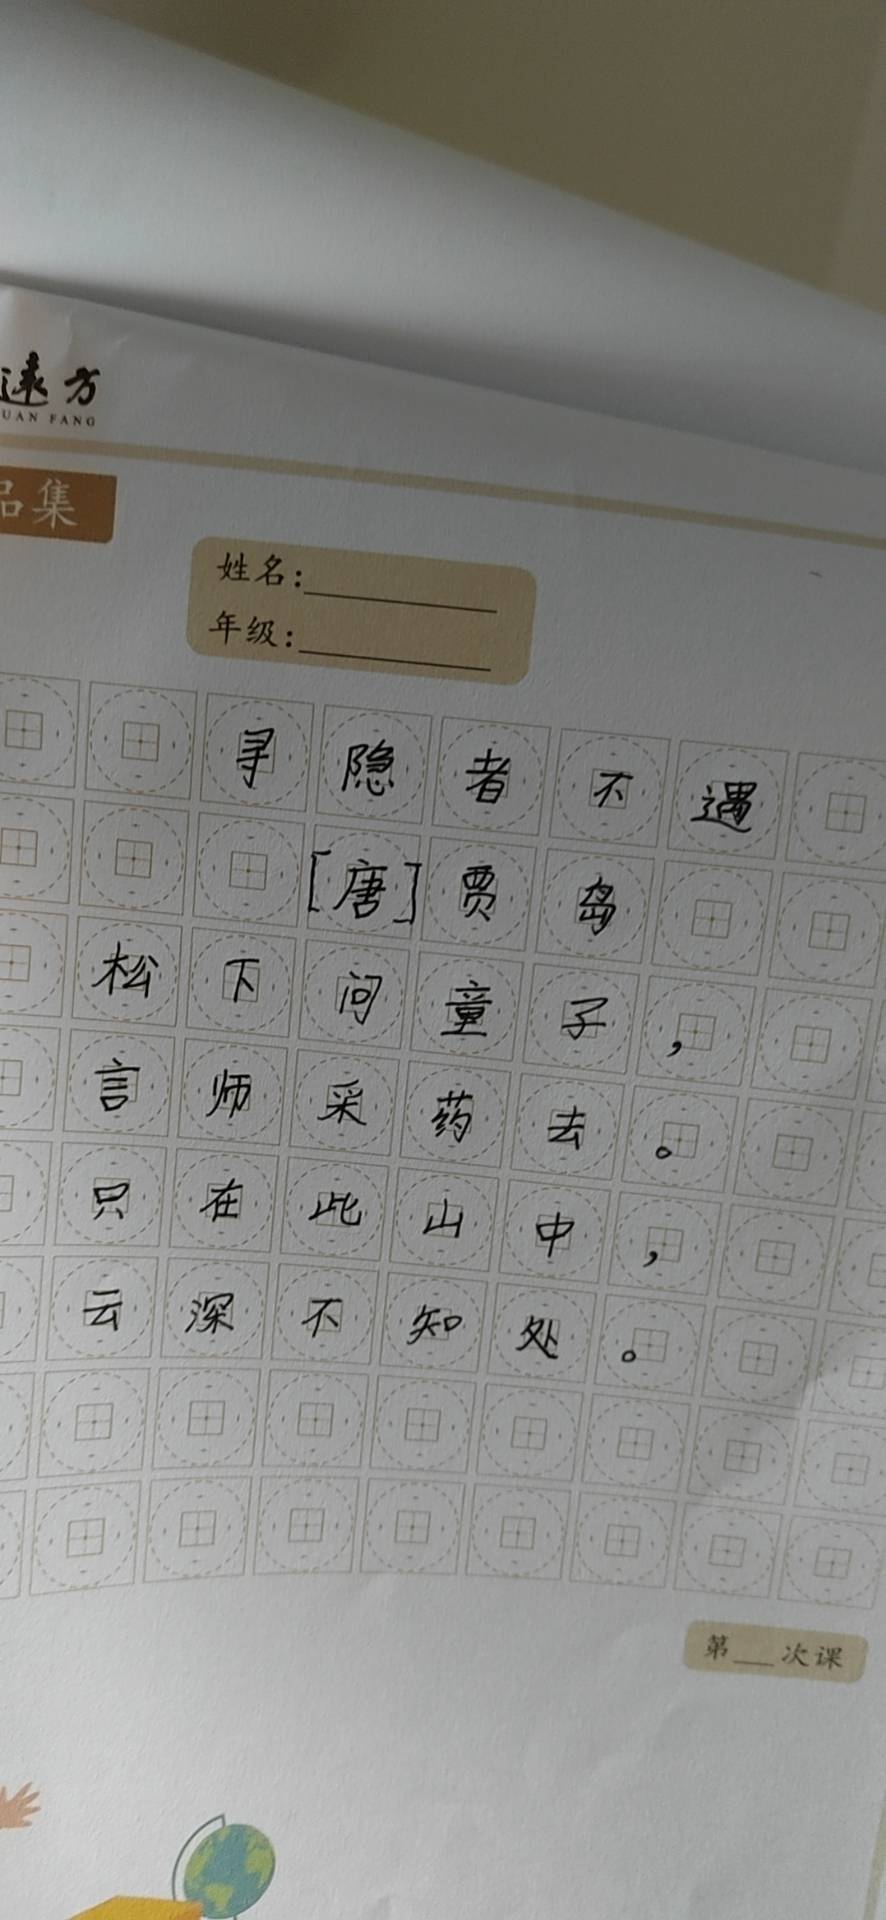 遠方
UAN FANG
品集
姓名:
年级:
寻隐者不遇
[唐]贾岛
松下问童子,
言师采药去。
只在此山中,
云深不知处。
第__次课